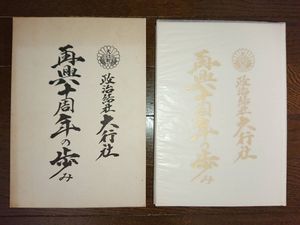 政治結社大行社
再興六十周年の歩み
政治結社大行社
再興六十周年の歩み